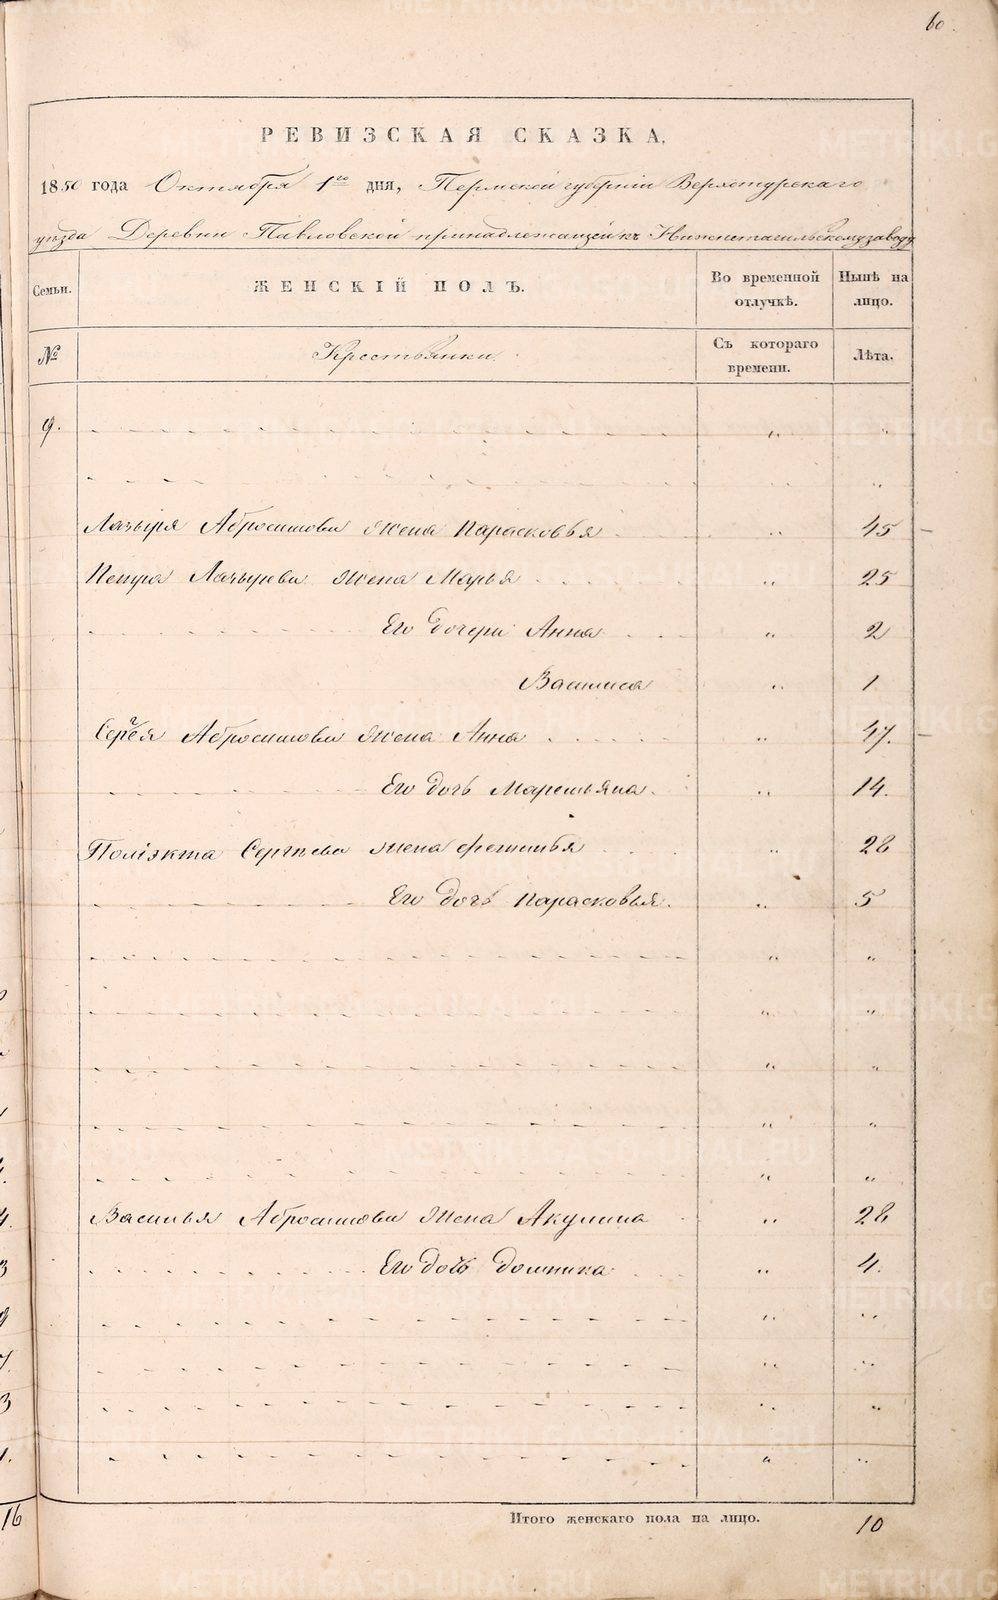 60.
РЕВИЗСКАЯ СКАЗКА.
1850 года Октября 1го дня, Пермской губернiи Верхотурскаго
уѣзда Деревни Павловской принадлежащей къ Нижнетагильскому заводу
Семьи. ЖЕНСКIЙ ПОЛЪ. Во временной отлучкѣ. Нынѣ на лицо.
№ Крестьянки. Съ котораго времени. Лѣта.
9.
Лазыря Абросимова жена Парасковья 45
Петра Лазырева жена Марья 25
Его дочери Анна 2
Василиса 1
Сергея Абросимова жена Анна 47.
Его дочь Маремьяна. 14.
Полiэкта Сергѣева жена 28
Его дочь Парасковья. 5
Василья Абросимова жена Акулина 28
Его дочь Домника 4.
Итого женскаго пола на лицо. 10
16
METRIKI.GASO-URAL.RU